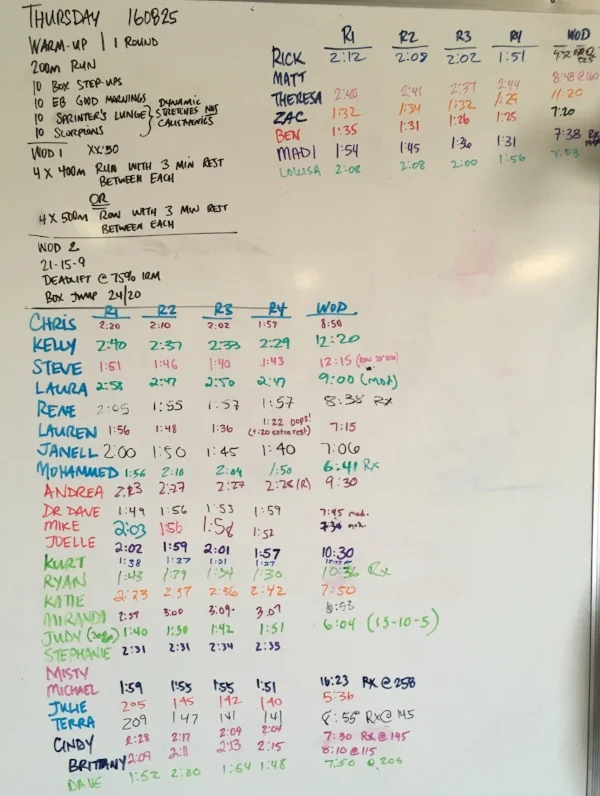 THURSDAY 160825
WARM-UP | 1 ROUND
200m RUN
10 BOX STEP-UPS
10 EB GOOD MORNINGS
10 SPRINTER'S LUNGE
10 SCORPIONS
DYNAMIC
STRETCHES NOT
CALISTHENICS
WOD 1 XX:30
4 X 400m RUN WITH 3 MIN REST
BETWEEN EACH
OR
4 X 500m ROW WITH 3 MIN REST
BETWEEN EACH
WOD 2
21-15-9
DEADLIFT @ 75% 1RM
BOX JUMP 24/20
R1 R2 R3 R4 WOD
RICK 2:12 2:08 2:02 1:51
MATT 8:48 @160
THERESA 2:45 2:41 2:37 2:44 11:20
ZAC 1:32 1:34 1:32 1:29 7:20
BEN 1:35 1:31 1:26 1:25 7:38 RX
MADI 1:54 1:45 1:36 1:31
LOUISA 2:08 2:08 2:00 1:56 7:03
R1 R2 R3 R4 WOD
CHRIS 2:20 2:10 2:02 1:57 8:50
KELLY 2:40 2:37 2:33 2:29 12:20
STEVE 1:51 1:46 1:40 1:43 12:15
LAURA 2:58 2:47 2:50 2:47 9:00 (mod)
RENE 2:05 1:55 1:57 1:57 8:38 RX
LAUREN 1:56 1:48 1:36 1:22 oops! (+:20 extra rest) 7:15
JANELL 2:00 1:50 1:45 1:40 7:06
MOHAMMED 1:56 2:10 2:04 1:50 6:41 Rx
ANDREA 2:23 2:27 2:27 2:28 (R) 9:30
DR DAVE 1:49 1:56 1:53 1:59 7:45 mod.
MIKE 2:03 1:56 1:58 1:52 7:34 mod.
JOELLE 2:02 1:59 2:01 1:57 10:30
KURT 1:38 1:37 1:31 1:27
RYAN 1:43 1:39 1:34 1:30 10:36 Rx
KATIE 2:33 2:37 2:36 2:42 7:50
MIRANDA 2:59 3:00 3:09 3:07 10:53
JUDY 1:40 1:50 1:42 1:51 6:04 (15-10-5)
STEPHANIE 2:31 2:31 2:34 2:35
MISTY
MICHAEL 1:59 1:55 1:55 1:51 16:23 RX @ 258
JULIE 205 145 142 140 5:36
TERRA 209 147 141 141 8:55 RX@145
CINDY 2:28 2:17 2:09 2:04 7:30 RX@145
BRITTANY 2:09 2:11 2:13 2:15 8:10 @115
DAVE 1:52 2:00 1:54 1:48 7:50 @205